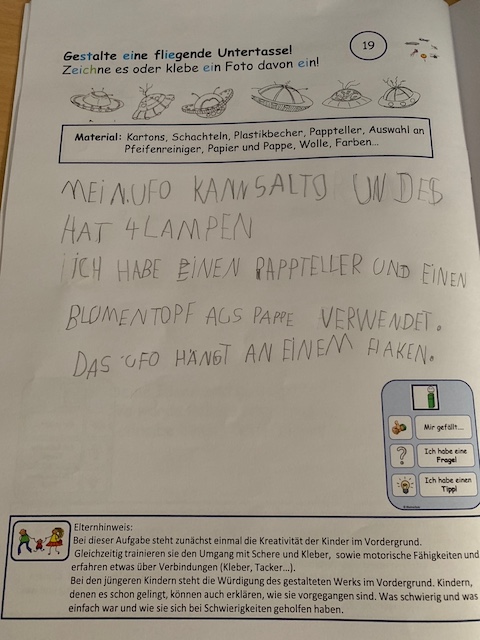 Gestalte eine fliegende Untertasse!
Zeichne es oder klebe ein Foto davon ein!
19
Material: Kartons, Schachteln, Plastikbecher, Pappteller, Auswahl an
Pfeifenreiniger, Papier und Pappe, Wolle, Farben...
MEIN UFO KANN SALTO UND ES
HAT 4 LAMPEN
ICH HABE EINEN PAPPTELLER UND EINEN
BLUMENTOPF AUS PAPPE VERWENDET.
DAS UFO HÄNGT AN EINEM HAKEN.
Mir gefällt...
?
Ich habe eine
Frage!
Ich habe einen
Tipp!
Elternhinweis:
Bei dieser Aufgabe steht zunächst einmal die Kreativität der Kinder im Vordergrund.
Gleichzeitig trainieren sie den Umgang mit Schere und Kleber, sowie motorische Fähigkeiten und
erfahren etwas über Verbindungen (Kleber, Tacker...).
Bei den jüngeren Kindern steht die Würdigung des gestalteten Werks im Vordergrund. Kindern,
denen es schon gelingt, können auch erklären, wie sie vorgegangen sind. Was schwierig und was
einfach war und wie sie sich bei Schwierigkeiten geholfen haben.